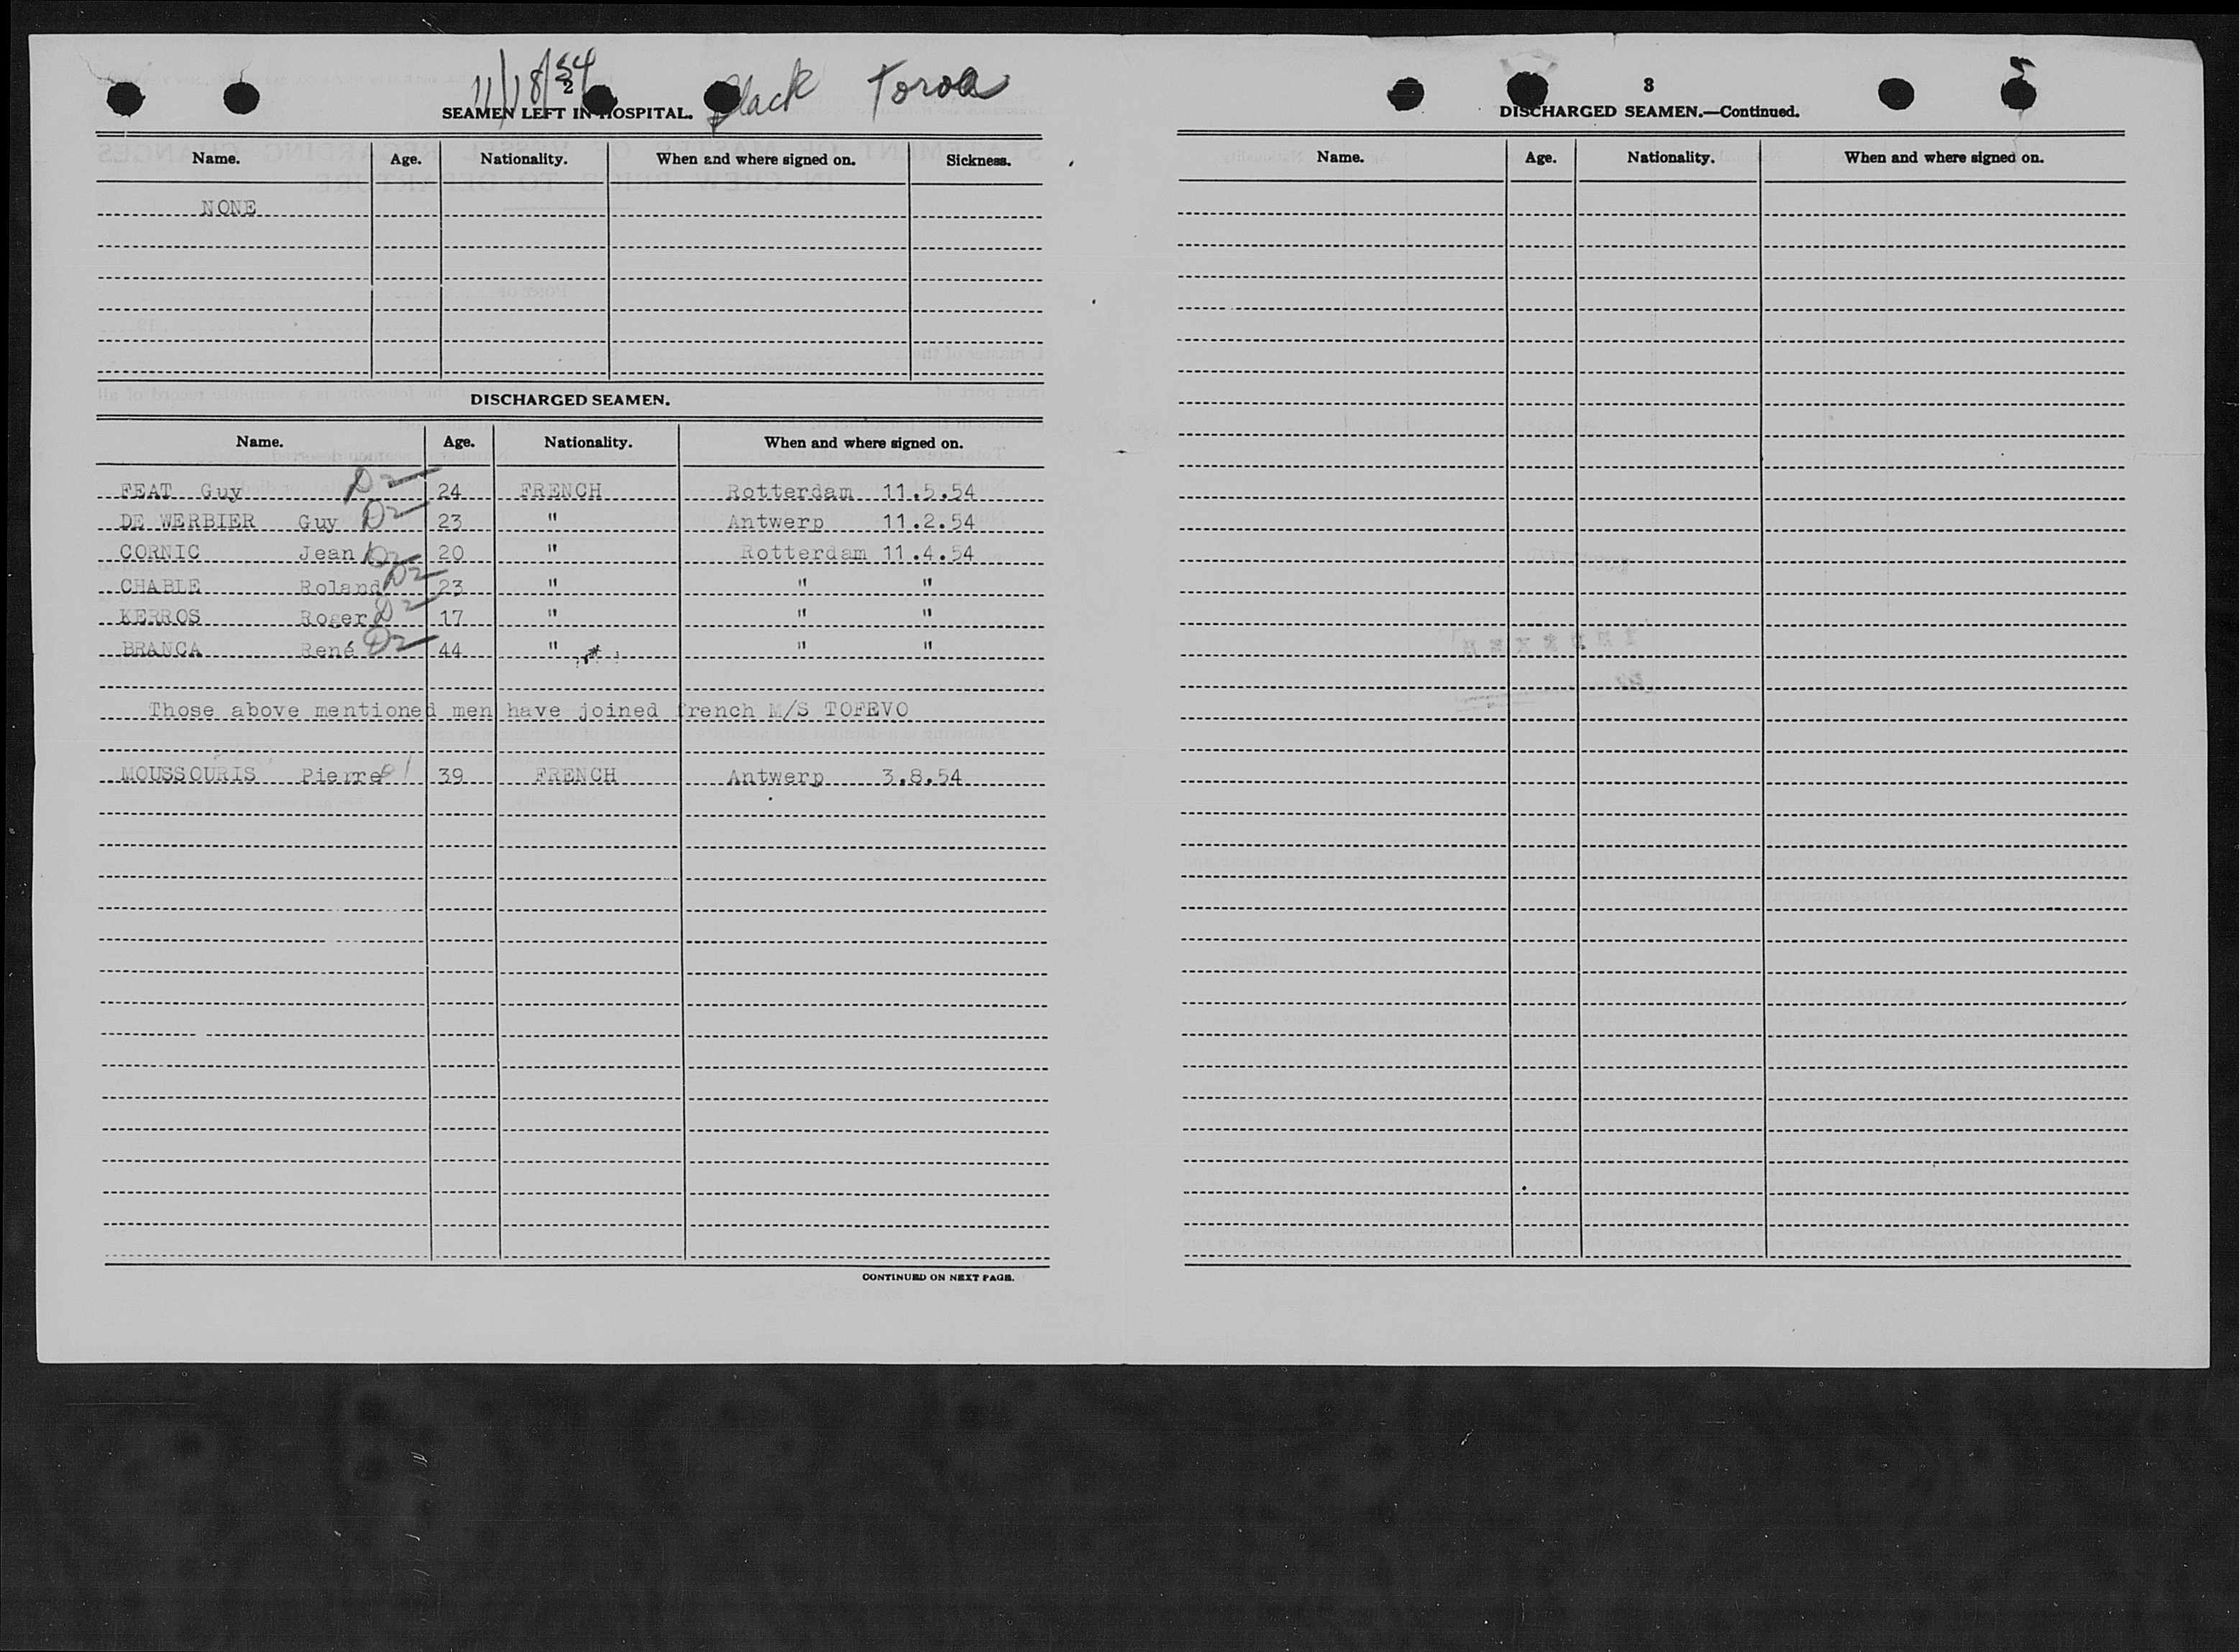 11/18/54 Black Toroa
2
SEAMEN LEFT IN HOSPITAL.
Name. Age. Nationality. When and where signed on. Sickness.
NONE
DISCHARGED SEAMEN.
Name. Age. Nationality. When and where signed on.
FEAT Guy D2 24 FRENCH Rotterdam 11.5.54
DE WERBIER Guy D2 23 " Antwerp 11.2.54
CORNIC Jean D2 20 " Rotterdam 11.4.54
CHABLE Roland D2 23 " " "
KERROS Roger D2 17 " " "
BRANCA René D2 44 " " "
Those above mentioned men have joined french M/S TOFEVO
MOUSSOURIS Pierre 39 FRENCH Antwerp 3.8.54
CONTINUED ON NEXT PAGE.
3
5
DISCHARGED SEAMEN.—Continued.
Name. Age. Nationality. When and where signed on.